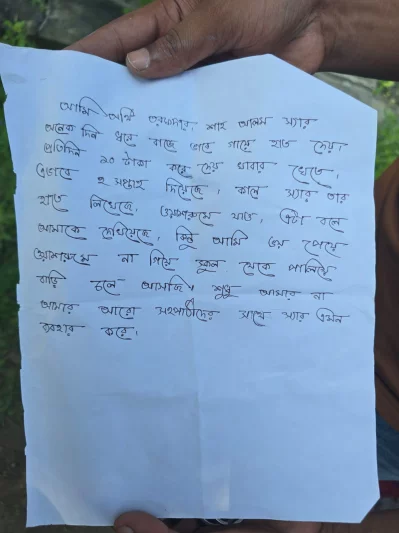 আমি অর্থি তরফদার, শাহ আলম স্যার
অনেক দিন ধরে বাজে ভাবে গায়ে হাত দেয়।
প্রতিদিন ১০ টাকা করে দেয় খাবার খেতে,
এভাবে ২ সপ্তাহ দিয়েছে, কাল স্যার তার
হাতে লিখেছে, ওয়াশরুমে যাও, এটা বলে
আমাকে দেখিয়েছে, কিন্তু আমি ভয় পেয়ে
ওয়াশরুমে না গিয়ে স্কুল থেকে পালিয়ে
বাড়ি চলে আসছি। শুধু আমার না
আমার আরো সহপাঠীদের সাথে স্যার এমন
ব্যবহার করে।